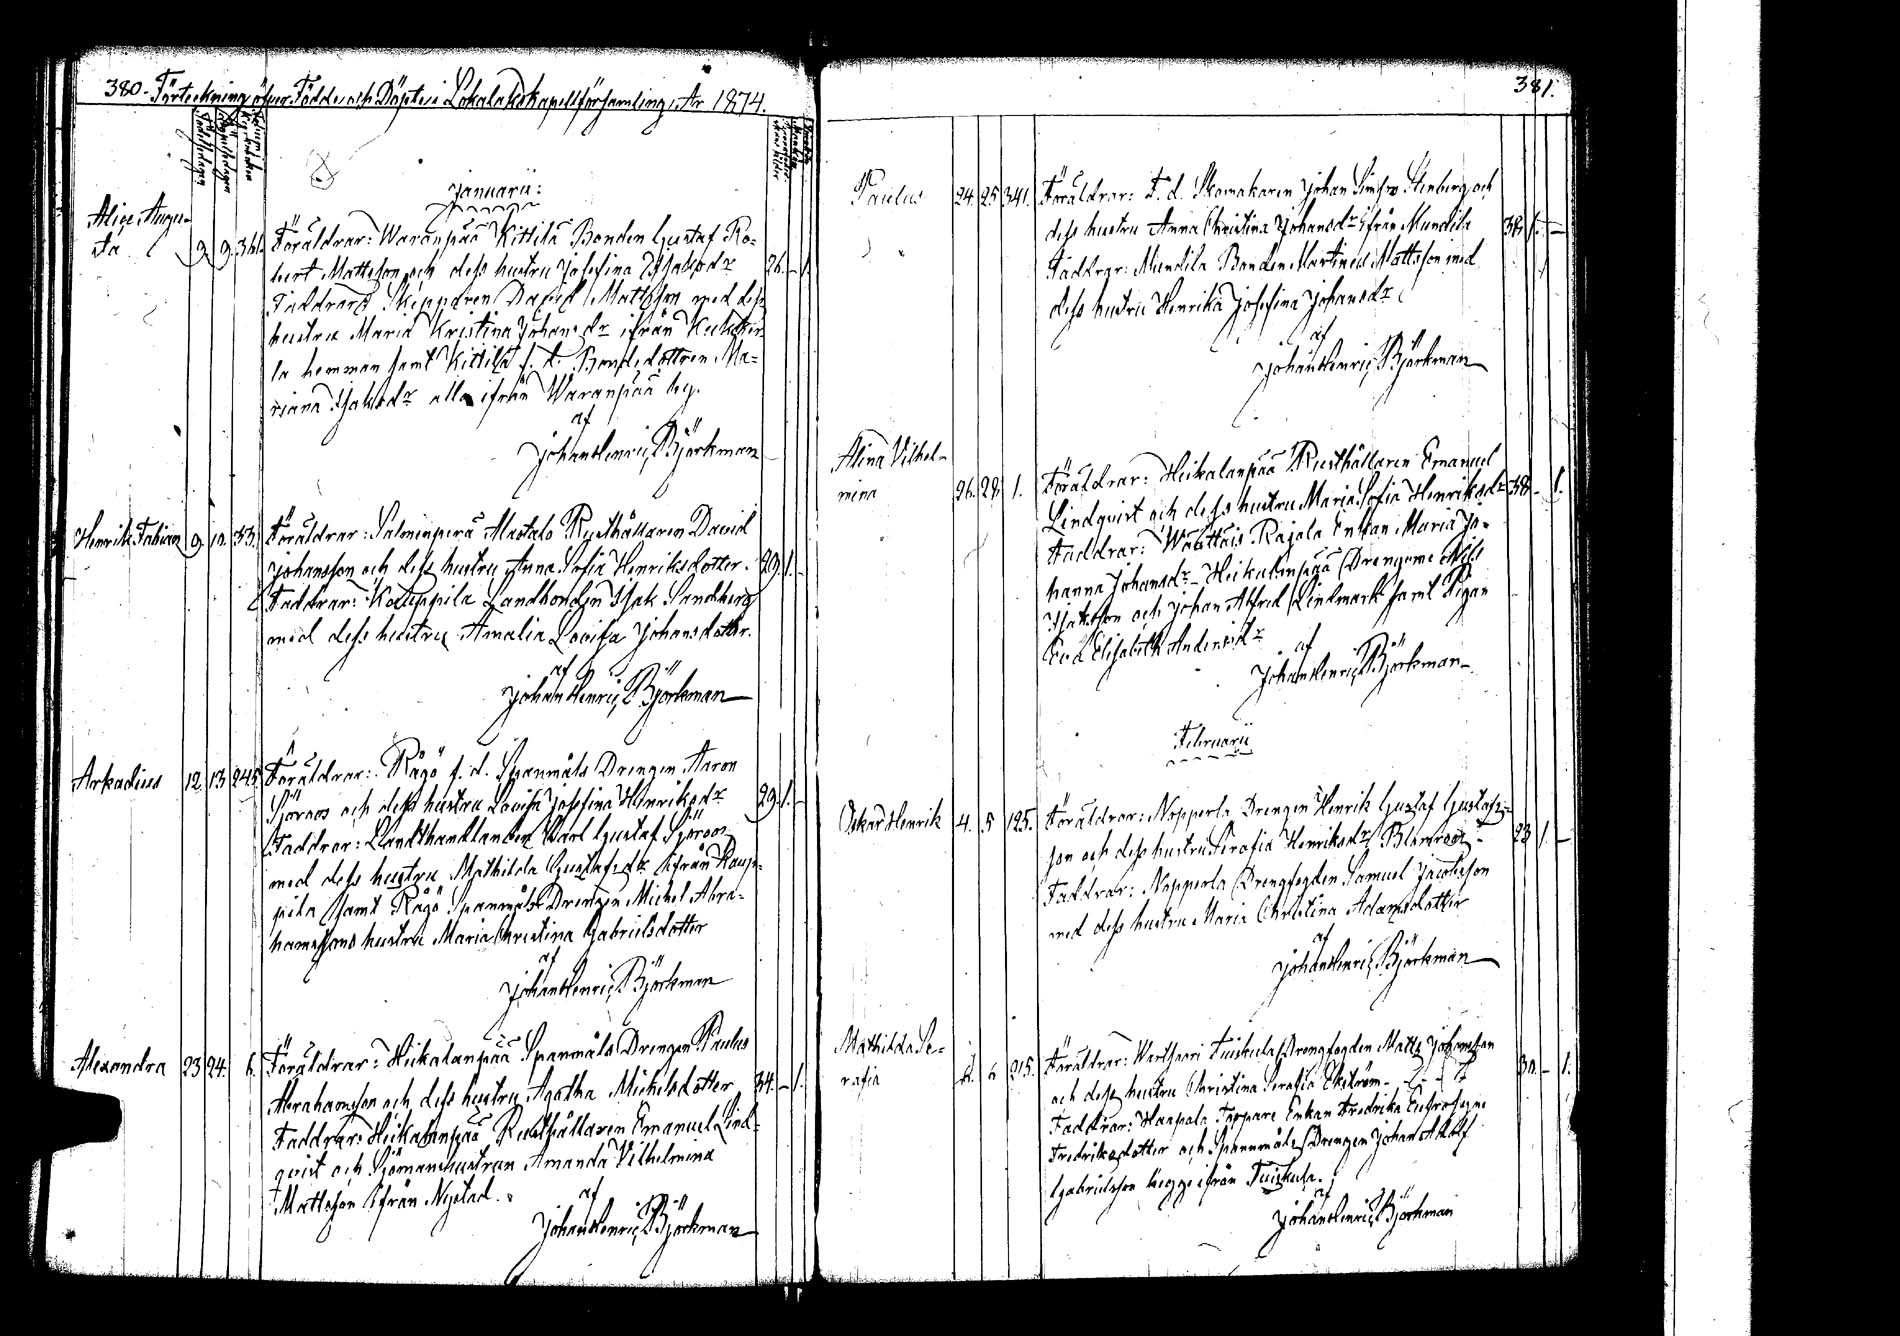 380. Förteckning öfver Födde och Döpte i Lokalaks Kapellförsamling, År 1874.
Januarii:
Alice Augu-
sta 9. 9. 361. Föräldrar: Waranpää Kittilä Bonden Gustaf Ro-
bert Mattsson och dess hustru Josefina Isaksdr 26. – 1.
Faddrar: Skepparen David Mattsson med dess
hustru Maria Kristina Johansdr ifrån
la hemman samt Kittilä f. d. Bondedottren Ma-
riana Isaksdr alla ifrån Waranpää by.
af
Johan Henric Björkman
Henrik Fabian 9. 10. 33. Föräldrar: Salmenperä Mastalo Rusthållaren David
Johansson och dess hustru Anna Sofia Henriksdotter. 29. 1. –
Faddrar: Kauppila Landbonden Isak Sandberg
med dess hustru Amalia Lovisa Johansdotter.
af
Johan Henric Björkman
Arkadius 12. 13. 245. Föräldrar: Rågö f. d. Spanmåls Drengen Aaron
Sjöroos och dess hustru Lovisa Josefina Henriksdr 29. 1. –
Faddrar: Landthandlanden Karl Gustaf Sjöroos
med dess hustru Mathilda Gustafsdr ifrån Kaup-
pila samt Rågö Spanmåls Drengen Michel Abra-
hamssons hustru Maria Christina Gabrielsdotter
af
Johan Henric Björkman
Alexandra 23. 24. 6. Föräldrar: Heikalanpää Spanmåls Drengen Paulus
Abrahamsson och dess hustru Agatha Michelsdotter 34. – 1.
Faddrar: Heikalanpää Rusthållaren Emanuel Lind-
qvist och Sjömanshustrun Amanda Vilhelmina
Mattsson ifrån Nystad.
af
Johan Henric Björkman
381.
Paulus 24. 25. 341. Föräldrar: F. d. Skomakaren Johan Stenberg och
dess hustru Anna Christina Johansdr ifrån Mundila 38. 1. –
Faddrar: Mundila Bonden Martinus Mattsson med
dess hustru Henrika Josefina Johansdr
af
Johan Henric Björkman
Alina Vilhel-
mina 26. 28. 1. Föräldrar: Heikalanpää Rusthållaren Emanuel
Lindqvist och dess hustru Maria Sofia Henriksdr 38. – 1.
Faddrar: Rajala Enkan Maria Jo-
hanna Johansdr – Heikalanpää Drengarne Nils
Isaksson och Johan Alfred Lindmark samt Pigan
Eva Elisabeth Andersdr
af
Johan Henric Björkman
Februarii
Oskar Henrik 4. 5. 125. Föräldrar: Nopperla Drengen Henrik Gustaf Gustafs-
son och dess hustru Serafia Henriksdr Blomroos – 23. 1. –
Faddrar: Nopperla Drengfogden Samuel Jacobsson
med dess hustru Maria Christina Adamsdotter
af
Johan Henric Björkman
Mathilda Se-
rafia 6. 6. 215. Föräldrar: Wartsaari Tuiskula Drengfogden Matts Johansson
och dess hustru Christina Serafia Ekström. 30. – 1.
Faddrar: Haapala Torpare Enkan Fredrika Eufrosyne
Fredriksdotter och Spannmåls Drengen Johan Adolf
Gabrielsson bägge ifrån Tuiskula.
af
Johan Henric Björkman